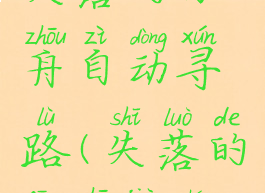 zhōu zì dòng xún
舟自动寻
lù shī luò de
路(失落的